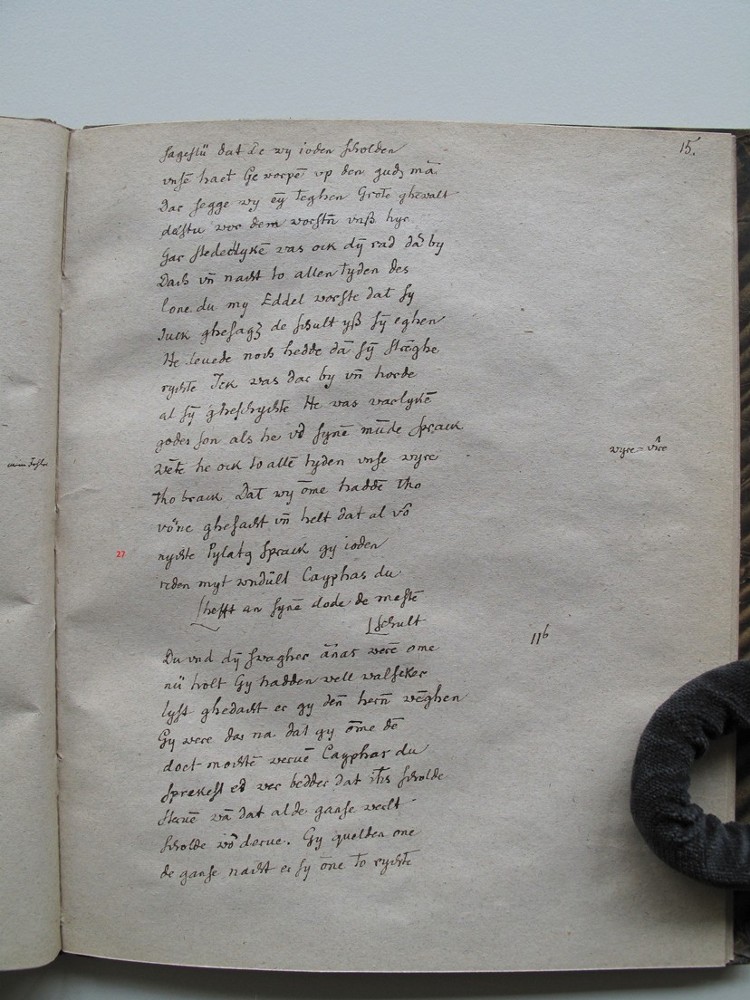 15.
sagestu dat De wy ioden scholden
vnse haet Ge worpē vp den gudē mā
Dar segge wy eȳ teghen Grote ghewalt
destu vor dem vorstn vnß hyr
Gar stedeclykē was ock dȳ rad da by
Dach vn̄ nacht to allen tyden des
lone du my Eddel vorste dat sy
Juck ghesagꝫ de schult yß sȳ eghen
He leuede noch hedde dā sȳ
rychte Ick was dar by vn̄ horde
al sȳ gheschychte He was warlykē
godes son als he vō synē mūde sprack
wēte he ock to allē tyden vnse vyre
wyre = vire
tho brack Dat wy ōme hadde tho
vōne ghesacht vn̄ helt dat al vō
nychte Pylatꝫ sprack gy ioden
27
reden myt vndult Cayphas du
heffst an synē dode de meste
schult
11b
Du vnd dȳ swagher ānas werē ome
nū holt Gy hadden well
lyst ghedacht er gy den hern vēghen
Gy were dar na dat gy ōme dē
doet mochtē Cayphas du
sprekest dat ihs scholde
steruē vā dat al de ganse werlt
scholde vō derue. Gy quelden one
de ganse nacht er sy one to rychte